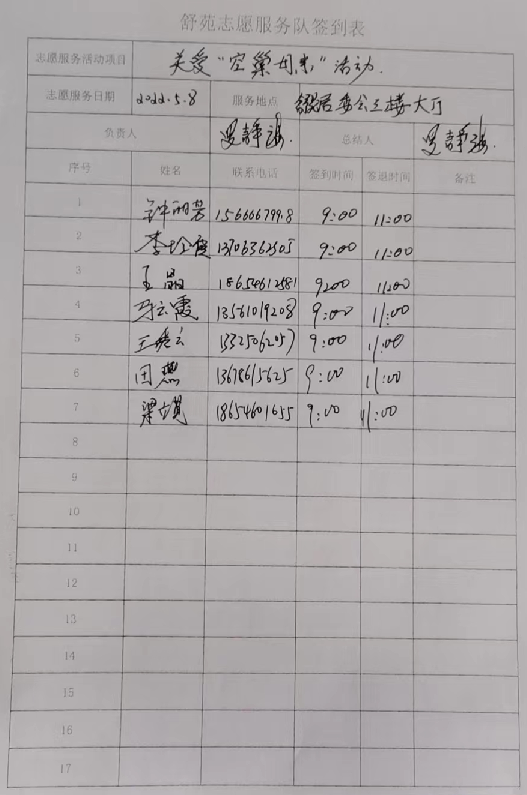 舒苑志愿服务队签到表
志愿服务活动项目 关爱“空巢母亲”活动.
志愿服务日期 2022.5.8 服务地点 居委会三楼大厅
负责人 总结人
序号 姓名 联系电话 签到时间 签退时间 备注
1 9:00 11:00
2 李 13706362505 9:00 11:00
3 王晶 18654612581 9:00 11:00
4 马云霞 13561019208 9:00 11:00
5 王 9:00 11:00
6 田燕 13678615625 9:00 11:00
7 梁 18654601655 9:00 11:00
8
9
10
11
12
13
14
15
16
17